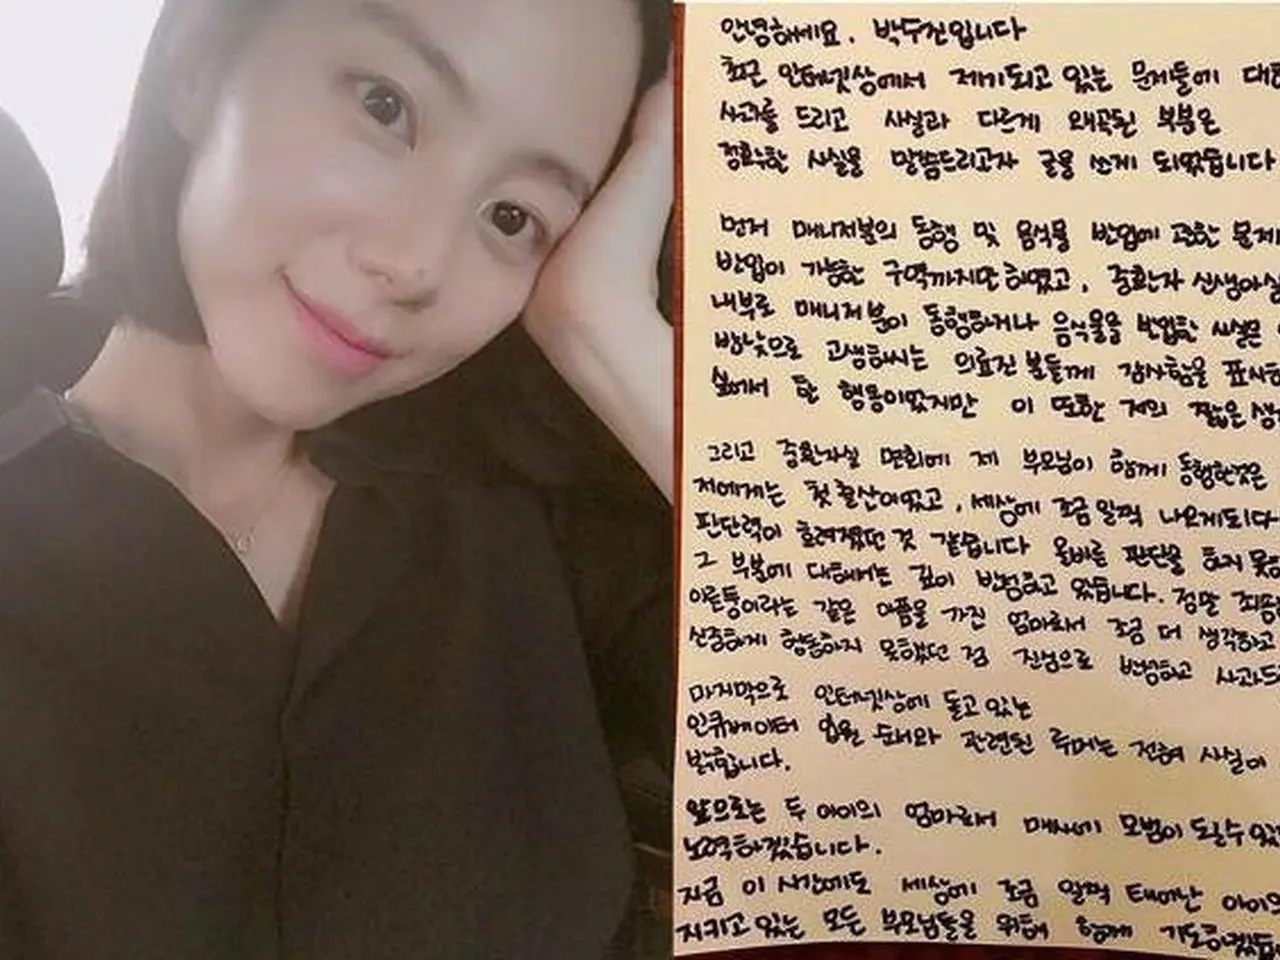 안녕하세요. 박수진입니다
최근 인터넷상에서 제기되고 있는 문제들에
사과를 드리고 사실과 다르게 왜곡된 부분은
정확한 사실을 말씀드리고자 글을 쓰게 되었습니다
먼저 매니저분의 동행 및 음식물 반입에 관한 문제
반입이 가능한 구역까지만 하였고, 중환자 신생아실
내부로 매니저분이 동행하거나 음식물을 반입한 사실은
밤낮으로 고생하시는 의료진분들께 감사함을 표시하
실에서 한 행동이었지만 이 또한 저의 짧은 생
그리고 중환자실 면회에 제 부모님이 함께 동행한것은
저에게는 첫 출산이었고, 세상에 조금 일찍 나오게되다
판단력이 흐려졌던 것 같습니다 올바른 판단을 하지 못
그 부분에 대해서는 깊이 반성하고 있습니다. 정말 죄송
이른둥이라는 같은 아픔을 가진 엄마로서 조금 더 생각하고
신중하게 행동하지 못했던 점 진심으로 반성하고 사과드
마지막으로 인터넷상에 돌고 있는
인큐베이터 입원 순서와 관련된 루머는 전혀 사실이
밝힙니다.
앞으로는 두 아이의 엄마로서 매사에 모범이 될수있
노력하겠습니다.
지금 이 시간에도 세상에 조금 일찍 태어난 아이
지키고 있는 모든 부모님들을 위해 함께 기도하겠습